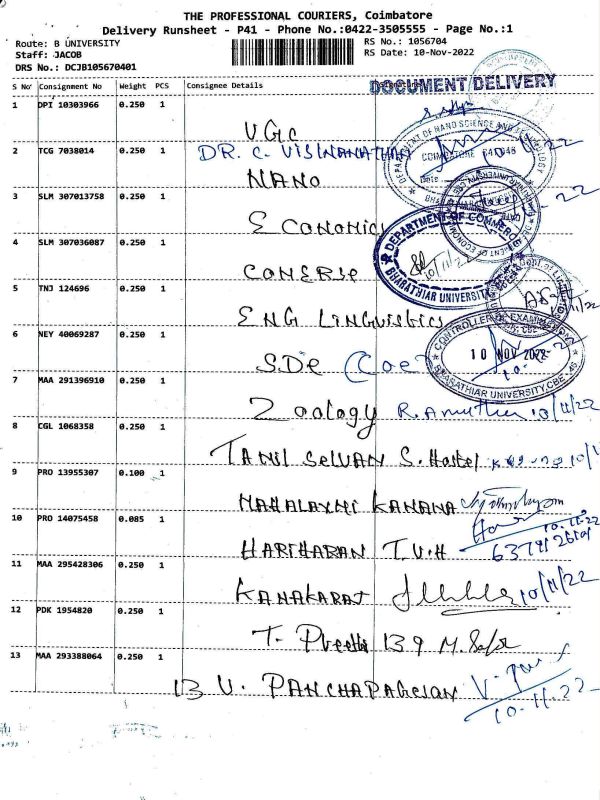 THE PROFESSIONAL COURIERS, Coimbatore
Delivery Runsheet - P41 - Phone No.:0422-3505555 - Page No.:1
Route: B UNIVERSITY
Staff: JACOB
DRS No.: DCJB105670401
RS No.: 1056704
RS Date: 10-Nov-2022
S No Consignment No Weight PCS Consignee Details
DOCUMENT DELIVERY
1 DPI 10303966 0.250 1
VGC
2 TCG 7038014 0.250 1 DR. C. VISWANATHAN
NANO
DEPARTMENT OF NANO SCIENCE AND TECHNOLOGY
COIMBATORE 641 046
3 SLM 307013758 0.250 1
ECONOMICS
4 SLM 307036087 0.250 1
COMERSE
DEPARTMENT OF COMMERCE
BHARATHIAR UNIVERSITY
10/11/22
5 TNJ 124696 0.250 1
ENG LINGUISTICS
6 NEY 40069287 0.250 1
S.De (Coe)
CONTROLLER OF EXAMINATIONS
10 NOV 2022
BHARATHIAR UNIVERSITY, CBE-46
7 MAA 291396910 0.250 1
Zoology R. Amutha 10/11/22
8 CGL 1068358 0.250 1
TAMIL SELVAN S. Hostel
9 PRO 13955307 0.100 1
MAHALAXMI KANANA
10 PRO 14075458 0.085 1
10.11.22
HARIHARAN T.V.H
11 MAA 295428306 0.250 1
KANAKARAJ 10/11/22
12 PDK 1954820 0.250 1
T. Preethi 139
13 MAA 293388064 0.250 1
13 V. PANCHAPAGESAN
10.11.22